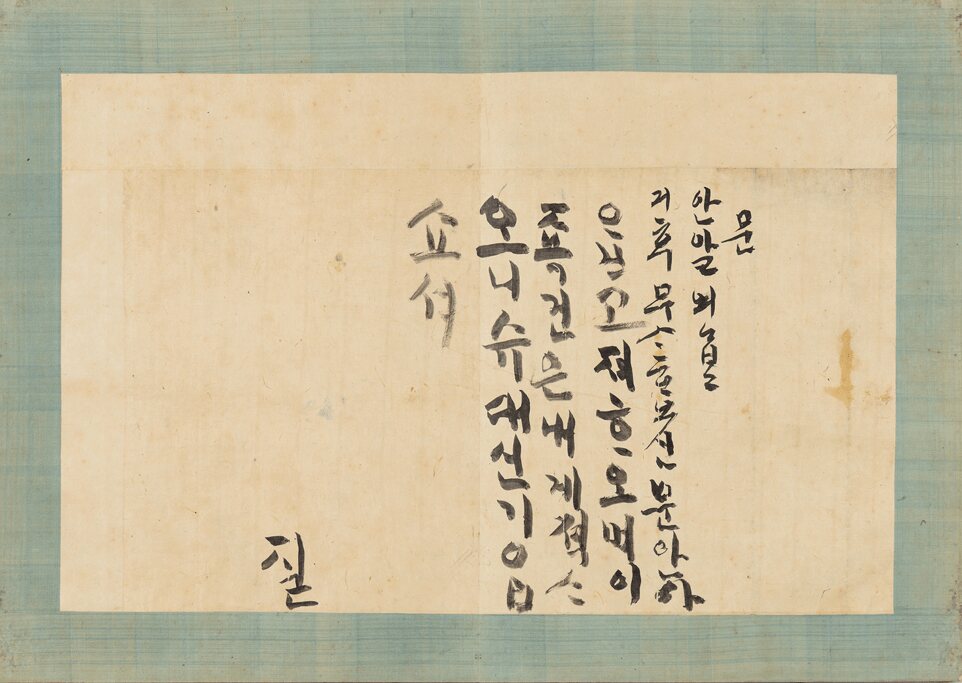 문
안알외ᄋᆞᆸ
긔후무ᄉᆞᄒᆞ오신문안아
ᄋᆞᆸ고져ᄒᆞ오며이
죡건은내게젹ᄉᆞ
오니슈대신기ᄋᆞᆸ
쇼셔
질